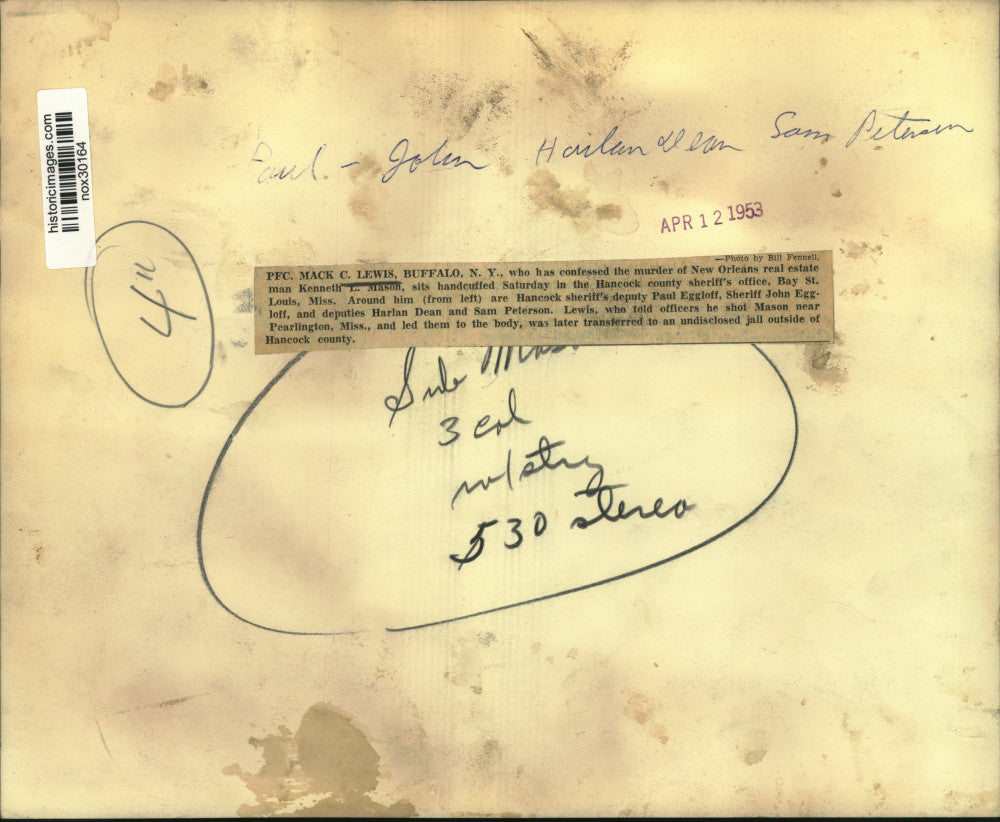 historicimages.com
nox30164
Paul - John Harlan Dean Sam Peterson
APR 12 1953
4"
—Photo by Bill Fennell.
PFC. MACK C. LEWIS, BUFFALO, N. Y., who has confessed the murder of New Orleans real estate
man Kenneth L. Mason, sits handcuffed Saturday in the Hancock county sheriff's office, Bay St.
Louis, Miss. Around him (from left) are Hancock sheriff's deputy Paul Eggloff, Sheriff John Egg-
loff, and deputies Harlan Dean and Sam Peterson. Lewis, who told officers he shot Mason near
Pearlington, Miss., and led them to the body, was later transferred to an undisclosed jail outside of
Hancock county.
3 col
w/stry
530 stereo